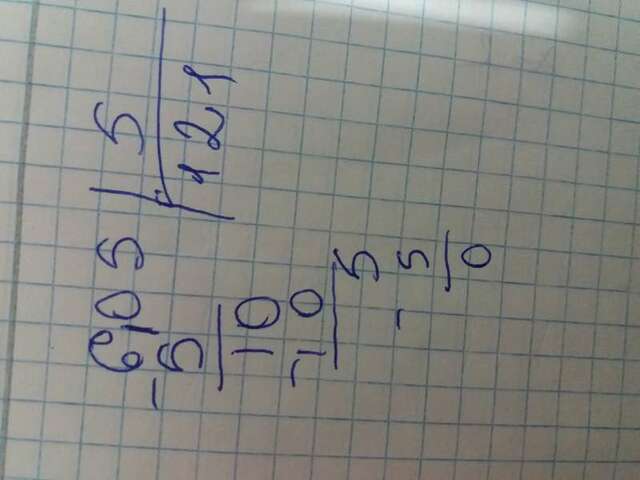 6,05 | 5
- 5 | 121
10
- 10
5
- 5
0